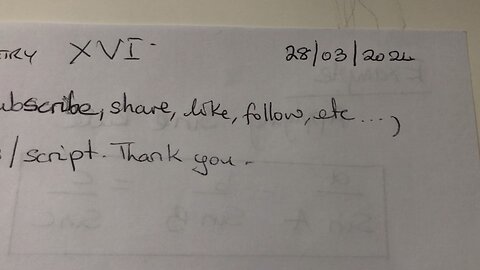 ETRY XVI 28/03/2024
ubscribe, share, like, follow, etc...,
s/script. Thank you.